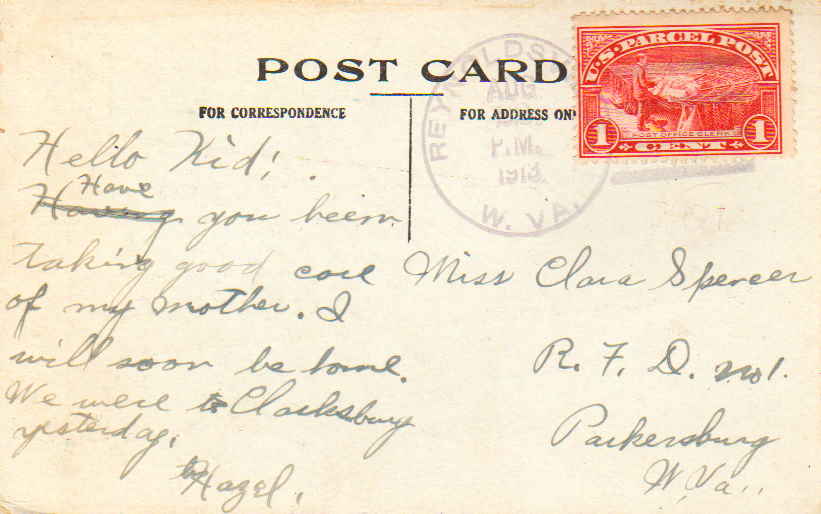 POST CARD
FOR CORRESPONDENCE
FOR ADDRESS ON
U.S. PARCEL POST
POST OFFICE CLERK
1 CENT 1
REYNOLDSV
AUG
P.M.
1913.
W. VA.
Hello Kid;
Have
Having you been
taking good care
of my mother. I
will soon be home.
We were to Clarksburg
yesterday.
Hazel.
Miss Clara Spencer
R. F. D. no 1.
Parkersburg
W. Va.